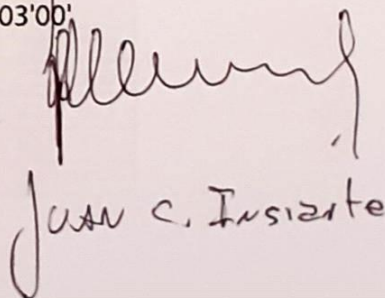 03'00'
Juan C. Insiarte